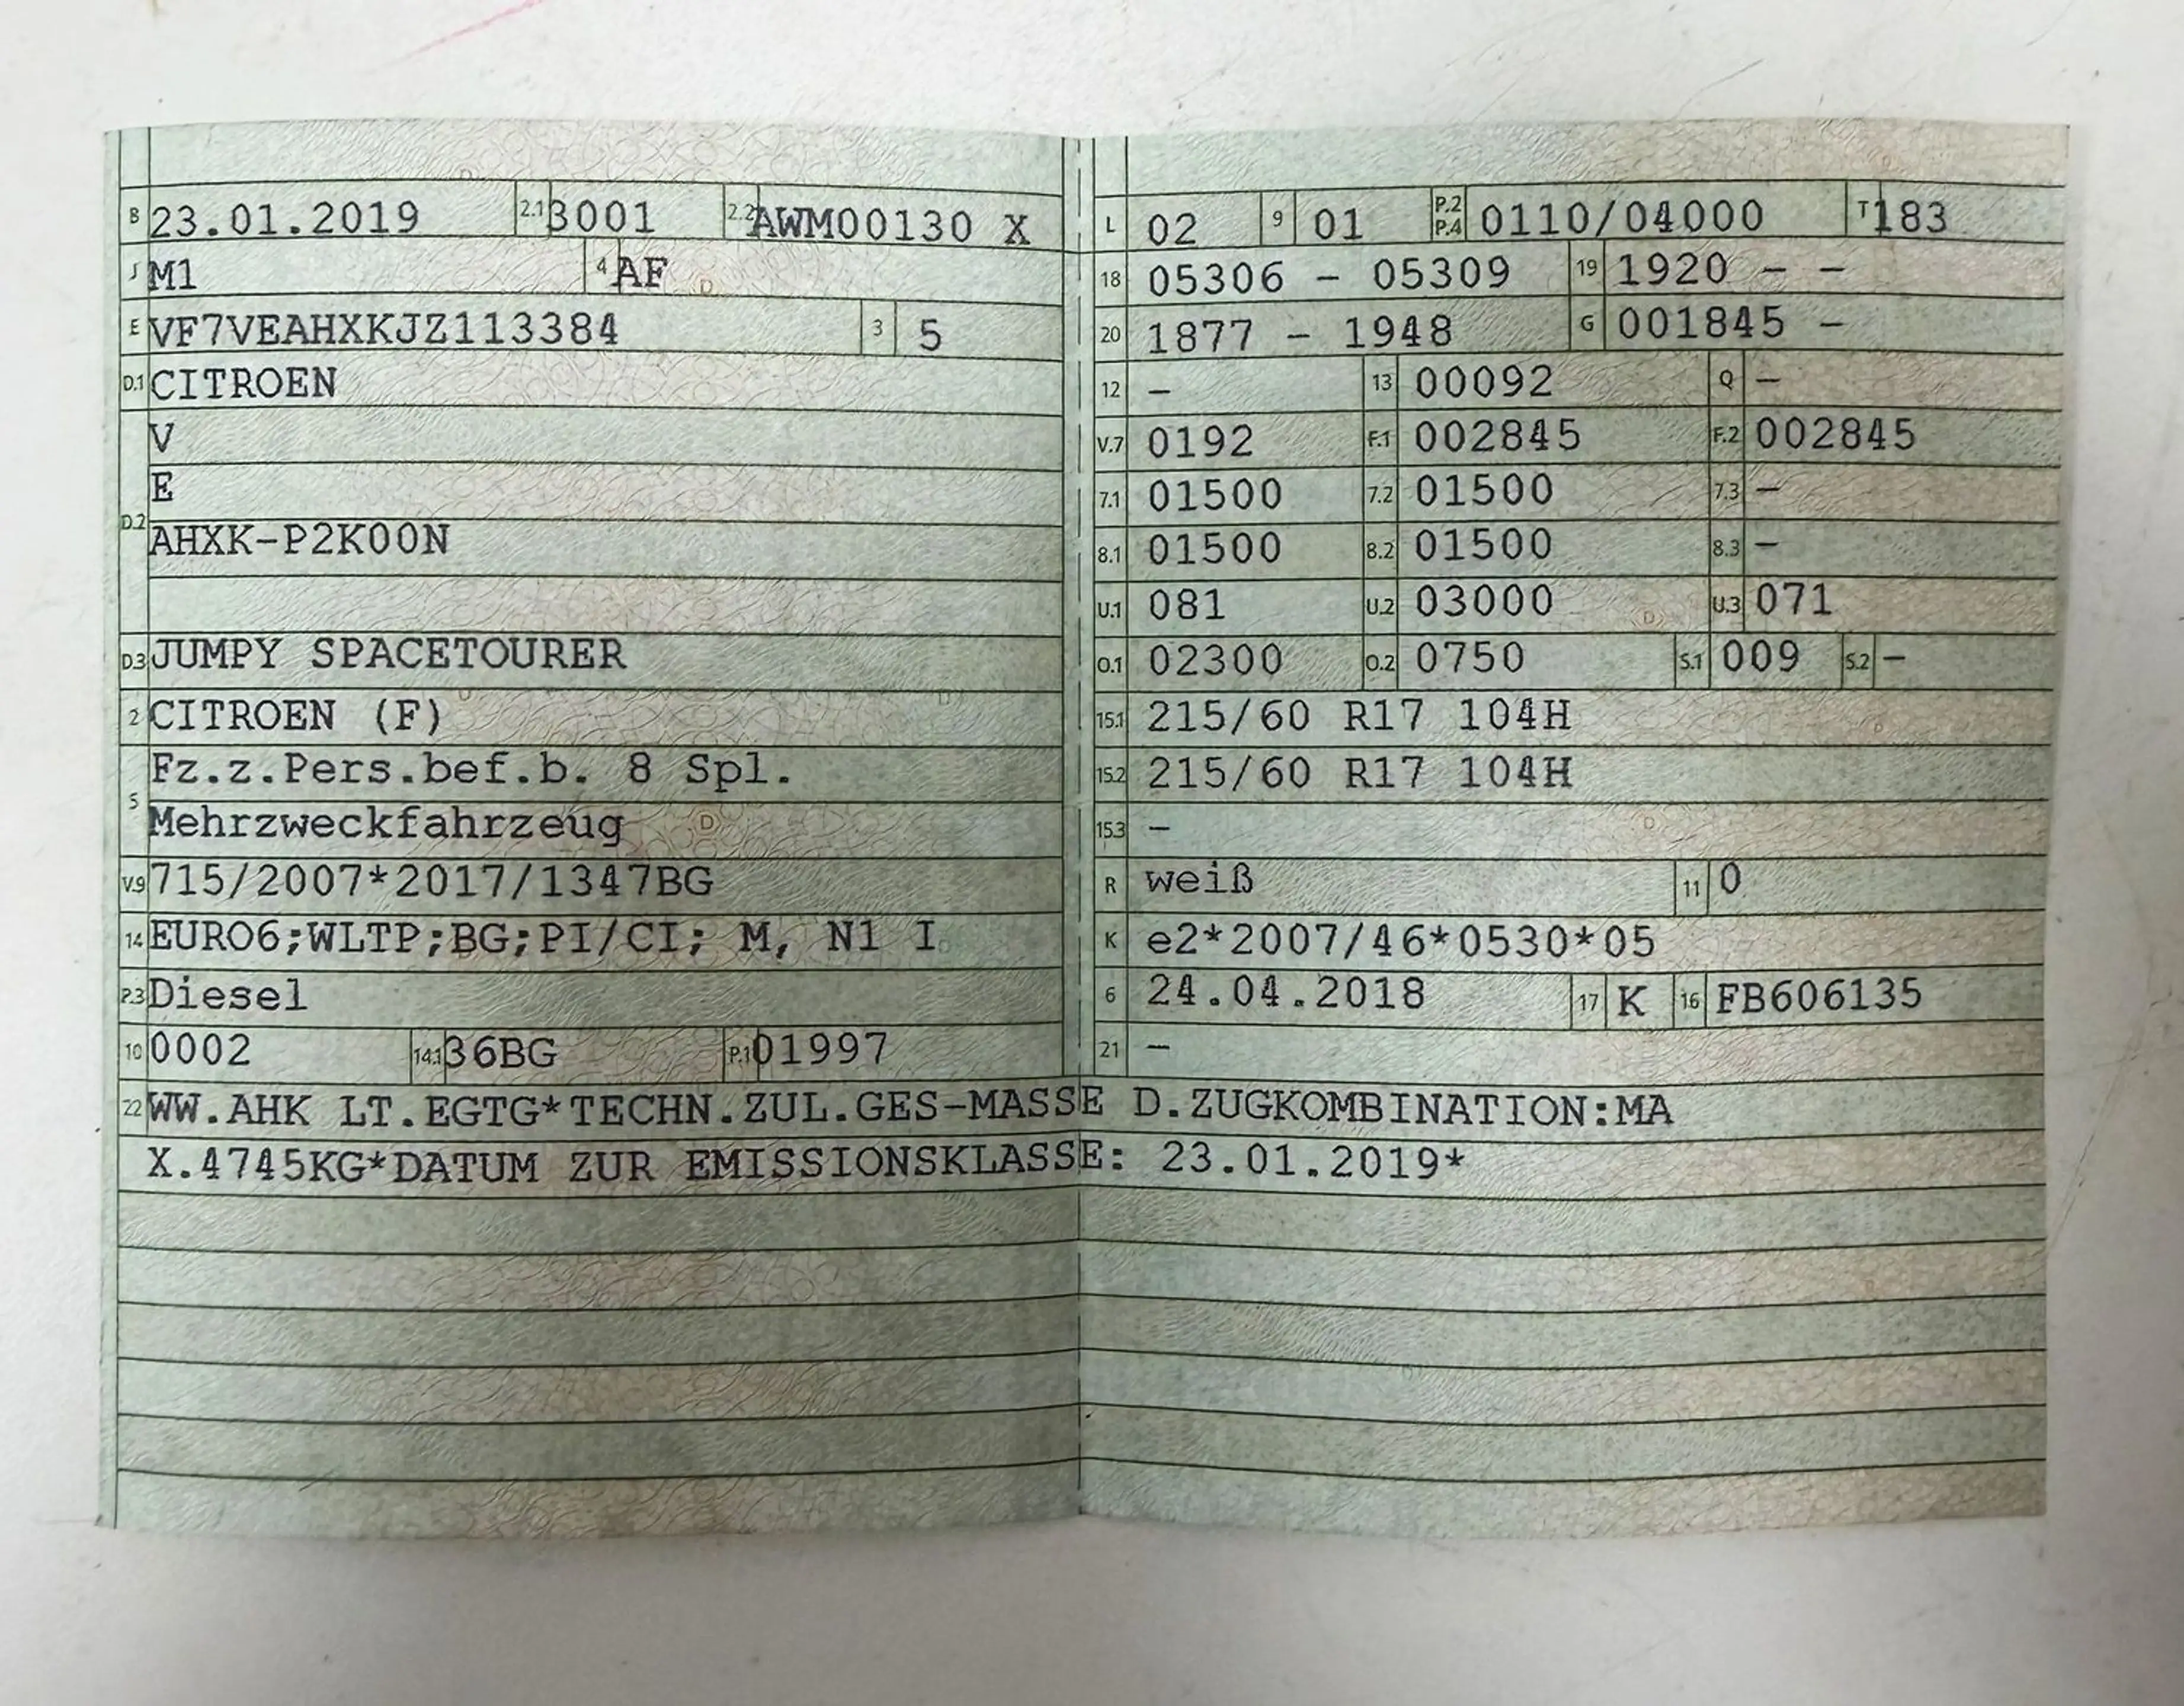 B 23.01.2019 2.1 3001 2.2 AWM00130 X
J M1 4 AF
E VF7VEAHXKJZ113384 3 5
D.1 CITROEN
V
E
D.2 AHXK-P2K00N
D.3 JUMPY SPACETOURER
2 CITROEN (F)
5 Fz.z.Pers.bef.b. 8 Spl.
Mehrzweckfahrzeug
V.9 715/2007*2017/1347BG
14 EURO6;WLTP;BG;PI/CI; M, N1 I
P.3 Diesel
10 0002 14.1 36BG P.1 01997
L 02 9 01 P.2 P.4 0110/04000 T 183
18 05306 - 05309 19 1920 - -
20 1877 - 1948 G 001845 -
12 - 13 00092 Q -
V.7 0192 F.1 002845 F.2 002845
7.1 01500 7.2 01500 7.3 -
8.1 01500 8.2 01500 8.3 -
U.1 081 U.2 03000 U.3 071
O.1 02300 O.2 0750 S.1 009 S.2 -
15.1 215/60 R17 104H
15.2 215/60 R17 104H
15.3 -
R weiß 11 0
K e2*2007/46*0530*05
6 24.04.2018 17 K 16 FB606135
21 -
22 WW.AHK LT.EGTG*TECHN.ZUL.GES-MASSE D.ZUGKOMBINATION:MA
X.4745KG*DATUM ZUR EMISSIONSKLASSE: 23.01.2019*